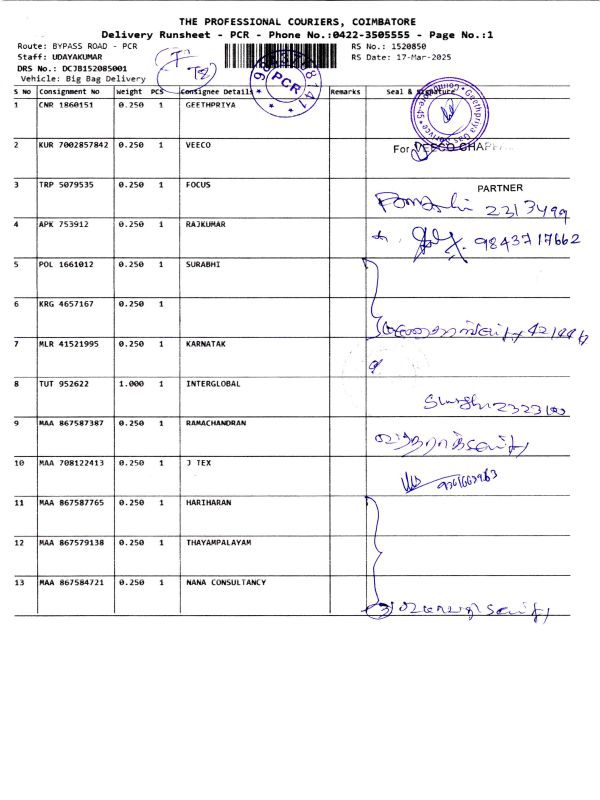 THE PROFESSIONAL COURIERS, COIMBATORE
Delivery Runsheet - PCR - Phone No.:0422-3505555 - Page No.:1
Route: BYPASS ROAD - PCR RS No.: 1520850
Staff: UDAYAKUMAR RS Date: 17-Mar-2025
DRS No.: DCJB152085001
Vehicle: Big Bag Delivery
PCR
S No Consignment No Weight PCS Consignee Details Remarks Seal & Signature
1 CNR 1860151 0.250 1 GEETHPRIYA
2 KUR 7002857842 0.250 1 VEECO For VEECO CHAP
3 TRP 5079535 0.250 1 FOCUS PARTNER
2213499
4 APK 753912 0.250 1 RAJKUMAR 9843717662
5 POL 1661012 0.250 1 SURABHI
6 KRG 4657167 0.250 1
7 MLR 41521995 0.250 1 KARNATAK
8 TUT 952622 1.000 1 INTERGLOBAL
9 MAA 867587387 0.250 1 RAMACHANDRAN
10 MAA 708122413 0.250 1 J TEX
11 MAA 867587765 0.250 1 HARIHARAN
12 MAA 867579138 0.250 1 THAYAMPALAYAM
13 MAA 867584721 0.250 1 NANA CONSULTANCY